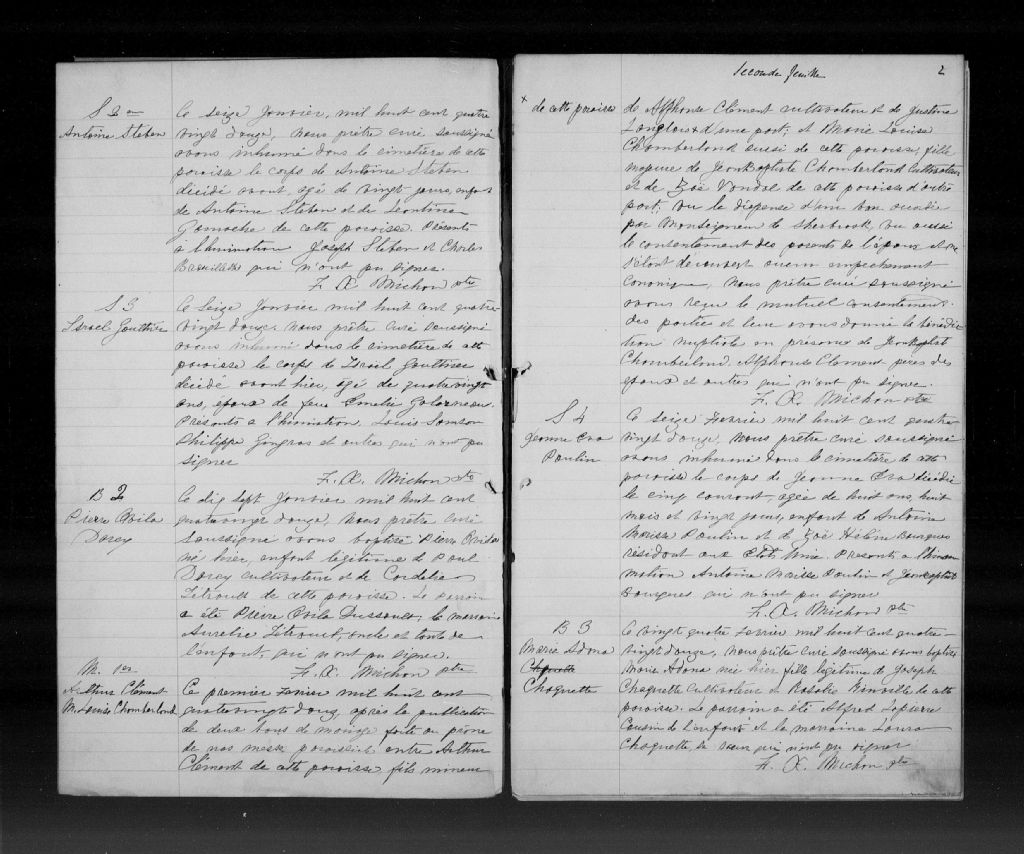 S 2
Antoine Steben
Ce seize Janvier, mil huit cent quatre
vingt douze, Nous prêtre curé soussigné
avons inhumé dans le cimetière de cette
paroisse le corps de Antoine Steben
décédé avant, agé de vingt jours, enfant
de Antoine Steben et de Léontine
Gamache de cette paroisse. Présents
à l'inhumation Joseph Steben et Charles
qui n'ont pu signer.
F. X. Michon ptre
S 3
Israel Gauthier
Ce seize Janvier mil huit cent quatre
vingt douze. Nous prêtre curé soussigné
avons inhumé dans le cimetière de cette
paroisse le corps de Israel Gauthier
décédé avant hier, agé de quatre vingt
ans, époux de feue Emelie Galarneau.
Présents a l'inhumation. Louis Samson
Philippe Gongras et autres qui n'ont pu
signer
F. X. Michon ptre
B 2
Pierre Ovila
Dorey
Ce dix sept Janvier mil huit cent
quatrevingt douze, Nous prêtre curé
soussigné avons baptisé Pierre Ovila
né hier, enfant légitime de Paul
Dorey cultivateur et de Cordelia
Tétrault de cette paroisse. Le parrain
a été Pierre Ovila Dussault, la marraine
Aurelie Tétrault, oncle et tante de
l'enfant, qui n'ont pu signer.
F. X. Michon ptre
M. 1er
Arthur Clément
M. Louise Chamberland
Ce premier Fevrier mil huit cent
quatrevingts douze, après la publication
de deux bans de mariage faite au prone
de nos messes paroissiales entre Arthur
Clément de cette paroisse fils mineur
Seconde feuille
2
x de cette paroisse
de Alphonse Clément cultivateur et de Justine
Langlois x d'une part; et Marie Louise
Chamberland aussi de cette paroisse, fille
majeure de Jeanbaptiste Chamberland Cultivateur
et de Zoé Vandal de cette paroisse d'autre
part; vu la dispense d'un ban accordée
par Monseigneur de Sherbrook, vu aussi
le consentement des parents de l'époux et ne
s'étant decouvert aucun empechement
canonique, Nous prêtre curé soussigné
avons reçu le mutuel consentement
des parties et leur avons donné la bénédic
tion nuptiale en présence de Jeanbaptiste
Chamberland, Alphonse Clement pères des
epoux et autres qui n'ont pu signer.
F. X. Michon ptre
S 4
Jeanne Eva
Poulin
Ce seize Fevrier mil huit cent quatre
vingt douze, Nous prêtre curé soussigné
avons inhumé dans le cimetière de cette
paroisse le corps de Jeanne Eva décédée
le cinq courant, agée de huit ans, huit
mois et vingt jours, enfant de Antoine
Moisse Poulin et de Zoé Hélène Bourgues
résidant aux Etats Unis. Présents a l'inhu
mation Antoine Moisse Poulin et Jeanbaptiste
Bourgues qui n'ont pu signer
F. X. Michon ptre
B 3
Marie Adona
Choquette
Choquette
Ce vingt quatre Fevrier mil huit cent quatre-
vingt douze, Nous prêtre curé soussigné avons baptisé
Marie Adona née hier fille légitime de Joseph
Choquette Cultivateur et Rosalie Rinville de cette
paroisse. Le parrain a été Alfred Lapierre
Cousin de l'enfant et la marraine Laura
Choquette, sa sœur qui n'ont pu signer
F. X. Michon ptre